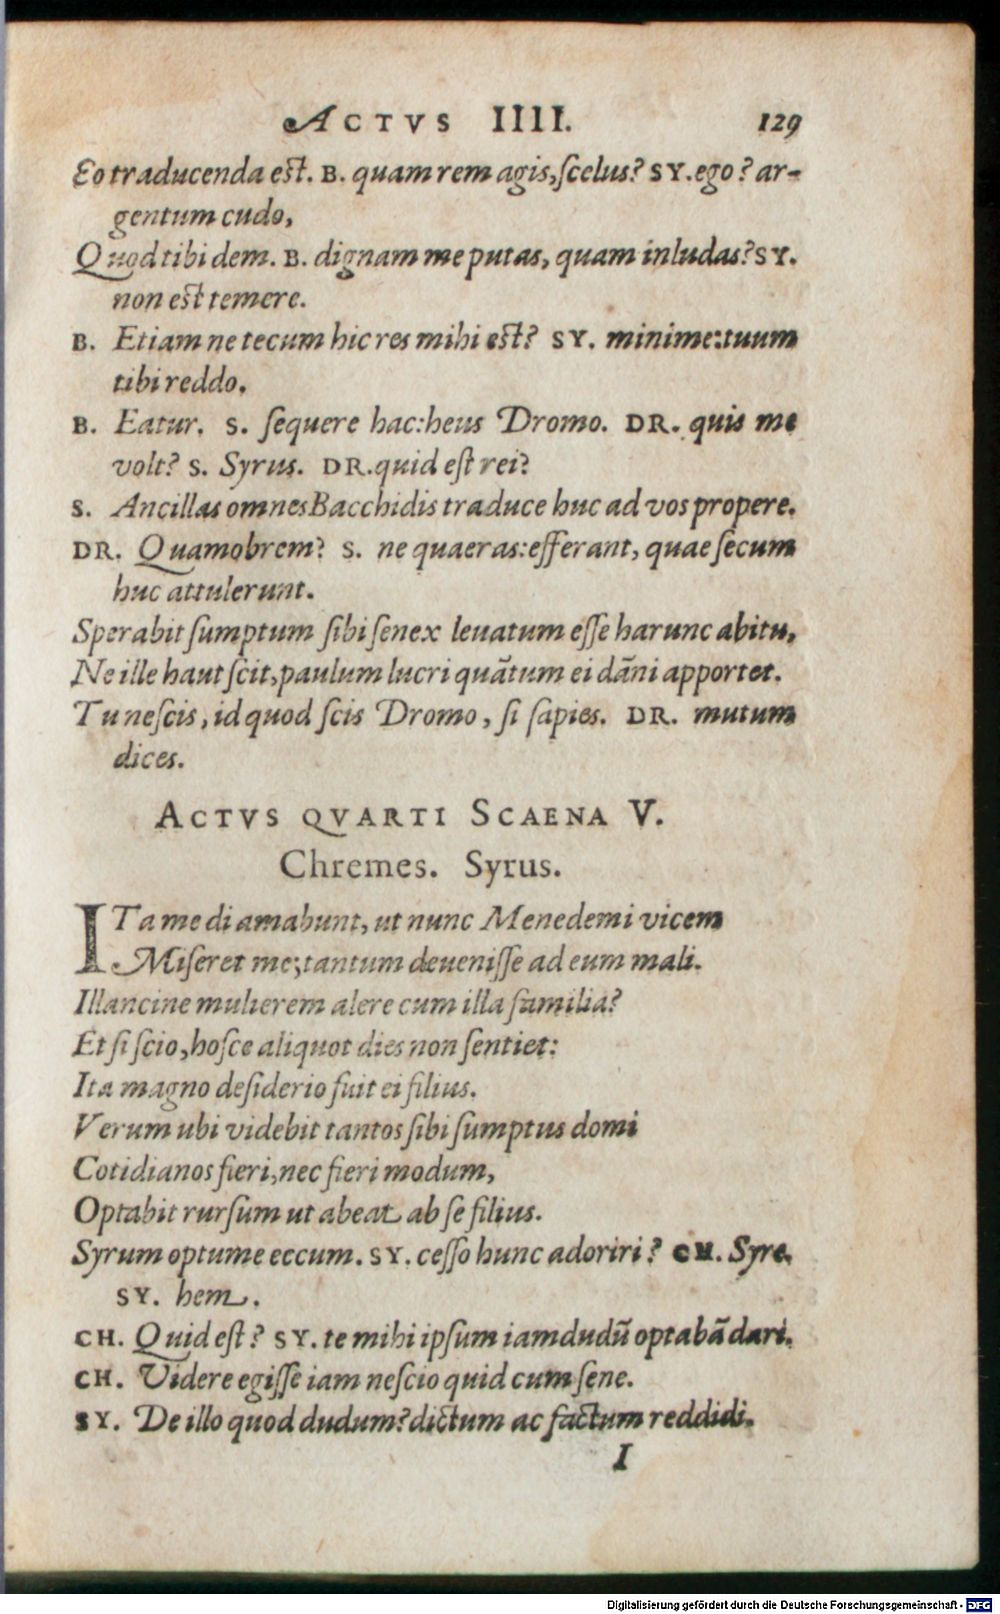 ACTVS IIII. 129
Eo traducenda est. B. quam rem agis, ſcelus? SY. ego? ar-
gentum cudo,
Quod tibi dem. B. dignam me putas, quam inludas? SY.
non est temere.
B. Etiam ne tecum hic res mihi est? SY. minime: tuum
tibi reddo.
B. Eatur. S. ſequere hac: heus Dromo. DR. quis me
volt? S. Syrus. DR. quid eſt rei?
S. Ancillas omnes Bacchidis traduce huc ad vos propere.
DR. Quamobrem? S. ne quaeras: efferant, quae ſecum
huc attulerunt.
Sperabit ſumptum ſibi ſenex leuatum eſſe harunc abitu,
Ne ille haut ſcit, paulum lucri quātum ei dāni apportet.
Tu neſcis, id quod ſcis Dromo, ſi ſapies. DR. mutum
dices.
ACTVS QVARTI SCAENA V.
Chremes. Syrus.
ITa me di amabunt, ut nunc Menedemi vicem
Miſeret me; tantum deueniſſe ad eum mali.
Illancine mulierem alere cum illa familia?
Et ſi ſcio, hoſce aliquot dies non ſentiet:
Ita magno deſiderio fuit ei filius.
Verum ubi videbit tantos ſibi ſumptus domi
Cotidianos fieri, nec fieri modum,
Optabit rurſum ut abeat ab ſe filius.
Syrum optume eccum. SY. ceſſo hunc adoriri? CH. Syre.
SY. hem.
CH. Quid eſt? SY. te mihi ipſum iamdudū optabā dari.
CH. Videre egiſſe iam neſcio quid cum ſene.
SY. De illo quod dudum? dictum ac factum reddidi.
I
Digitalisierung gefördert durch die Deutsche Forschungsgemeinschaft - DFG